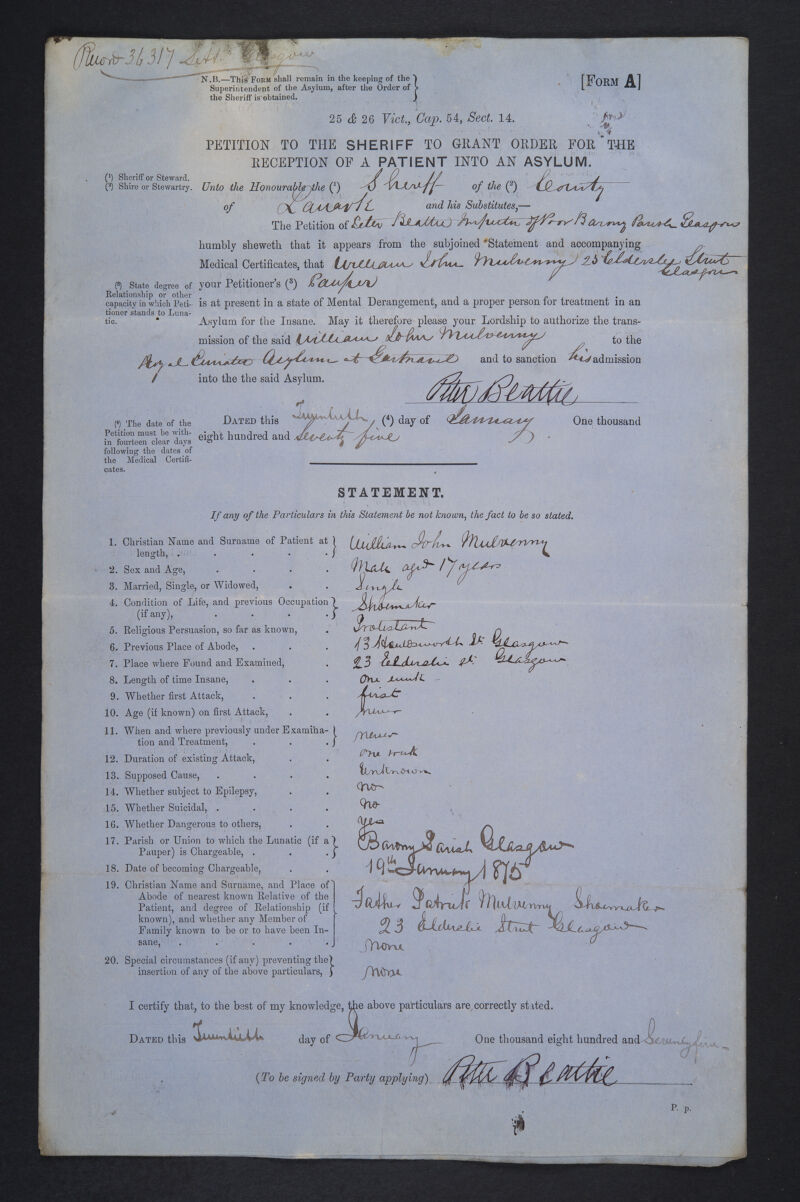 Record 36317 Glasgow
N.B.—This Form shall remain in the keeping of the
Superintendent of the Asylum, after the Order of
the Sheriff is obtained.
[Form A]
25 & 26 Vict., Cap. 54, Sect. 14.
PETITION TO THE SHERIFF TO GRANT ORDER FOR THE
RECEPTION OF A PATIENT INTO AN ASYLUM.
(1) Sheriff or Steward.
(2) Shire or Stewartry.
Unto the Honourable the (1) Sheriff of the (2) County
of Lanark and his Substitutes,—
The Petition of Peter Beattie Inspector of Poor Barony Parish Glasgow
humbly sheweth that it appears from the subjoined *Statement and accompanying
Medical Certificates, that William John Mulvenny 23 Elderslie Street
Glasgow
(3) State degree of
Relationship or other
capacity in which Peti-
tioner stands to Luna-
tic.
your Petitioner's (3) Pauper
is at present in a state of Mental Derangement, and a proper person for treatment in an
Asylum for the Insane. May it therefore please your Lordship to authorize the trans-
mission of the said William John Mulvenny to the
Royal Lunatic Asylum at Gartnavel and to sanction his admission
into the the said Asylum.
Peter Beattie
(4) The date of the
Petition must be with-
in fourteen clear days
following the dates of
the Medical Certifi-
cates.
Dated this Twentieth (4) day of January One thousand
eight hundred and Seventy five
STATEMENT.
If any of the Particulars in this Statement be not known, the fact to be so stated.
1. Christian Name and Surname of Patient at
length, . . . . . William John Mulvenny
2. Sex and Age, . . . . Male aged 17 years
3. Married, Single, or Widowed, . . Single
4. Condition of Life, and previous Occupation
(if any), . . . . Shoemaker
5. Religious Persuasion, so far as known, . Protestant
6. Previous Place of Abode, . . . 13 Houldsworth St Glasgow
7. Place where Found and Examined, . 23 Elderslie St Glasgow
8. Length of time Insane, . . . One week
9. Whether first Attack, . . . first
10. Age (if known) on first Attack, . . never
11. When and where previously under Examina-
tion and Treatment, . . . never
12. Duration of existing Attack, . . One week
13. Supposed Cause, . . . . Unknown
14. Whether subject to Epilepsy, . . No
15. Whether Suicidal, . . . . No
16. Whether Dangerous to others, . . Yes
17. Parish or Union to which the Lunatic (if a
Pauper) is Chargeable, . . . Barony Parish Glasgow
18. Date of becoming Chargeable, . . 19th January 1875
19. Christian Name and Surname, and Place of
Abode of nearest known Relative of the
Patient, and degree of Relationship (if
known), and whether any Member of
Family known to be or to have been In-
sane, . . . . .
Father Patrick Mulvenny Shoemaker
23 Elderslie Street Glasgow
None
20. Special circumstances (if any) preventing the
insertion of any of the above particulars, None
I certify that, to the best of my knowledge, the above particulars are correctly stated.
Dated this Twentieth day of January One thousand eight hundred and Seventy five
(To be signed by Party applying) Peter Beattie
P. p.